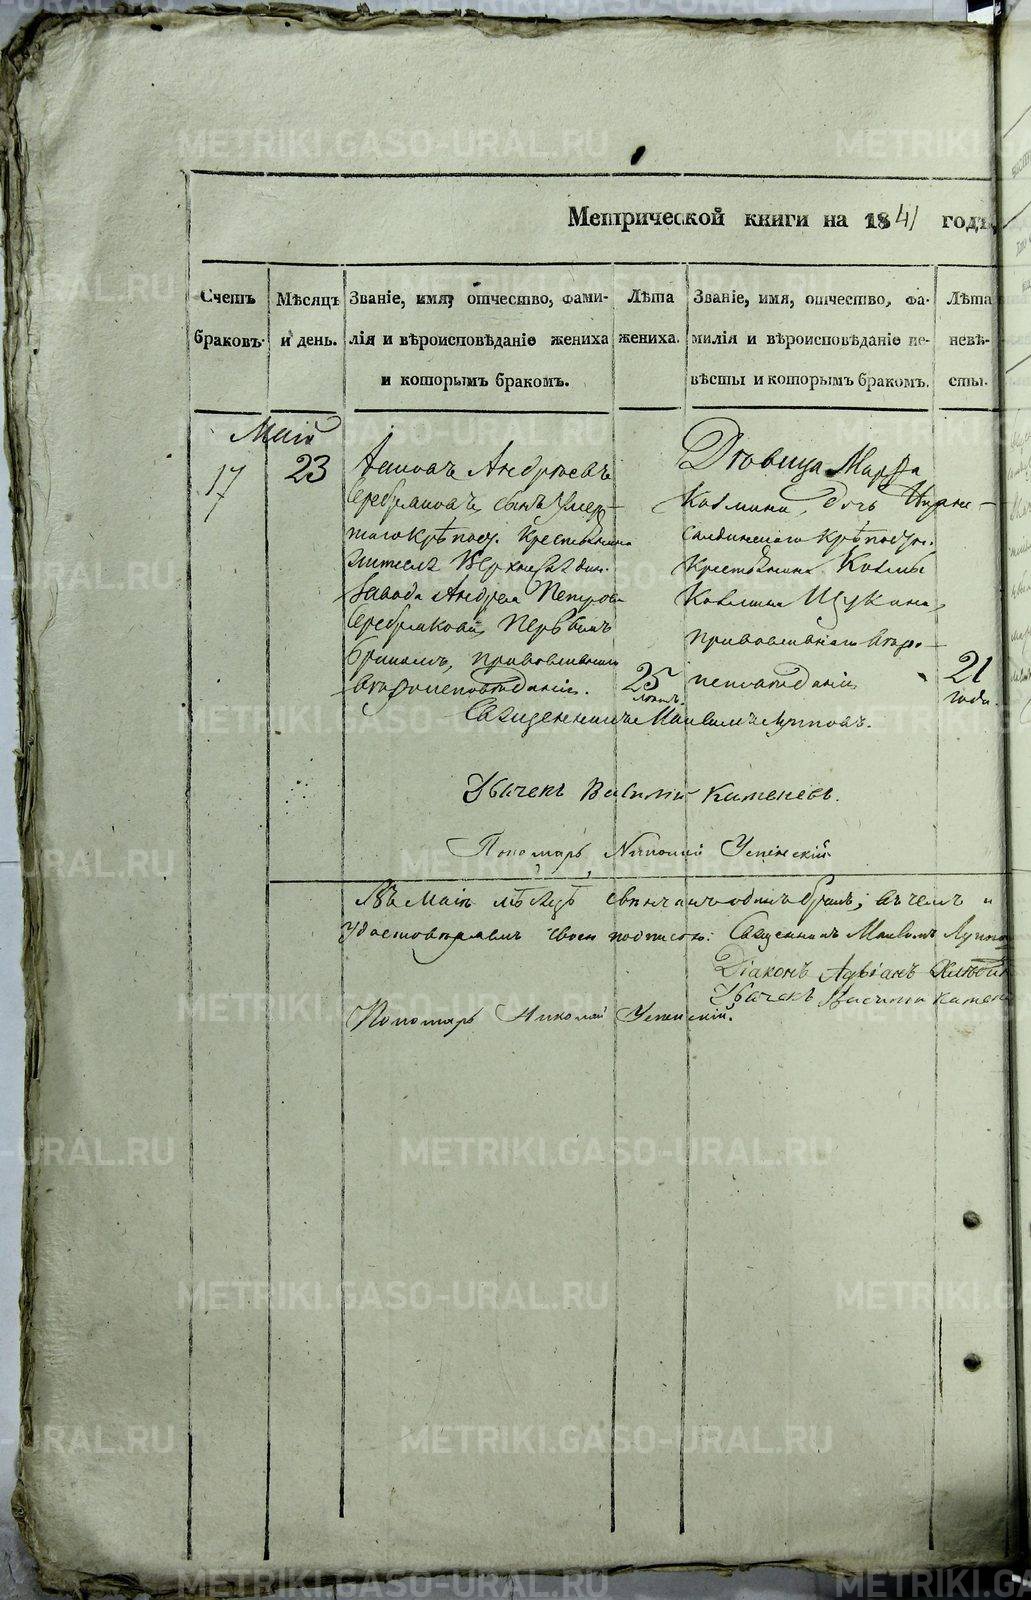 METRIKI.GASO-URAL.RU
Метрической книги на 1841 годъ
Счетъ браковъ.
Мѣсяцъ и день.
Званіе, имя, отчество, фами-
лія и вѣроисповѣданіе жениха
и которымъ бракомъ.
Лѣта
жениха.
Званіе, имя, отчество, фа-
милія и вѣроисповѣданіе не-
вѣсты и которымъ бракомъ.
Лѣта
невѣ-
сты.
Маій
17
23
Андрѣевъ
Серебряковъ, сынъ умер-
шаго крѣпос. крестьянина
жителя Верхнесалдин.
завода Андрея Петрова
Серебрякова, первымъ
бракомъ, православнаго
вѣроисповѣданія.
25
лѣтъ.
Дѣвица Марѳа
Козмина, дочь Нижне-
салдинскаго крѣпостн.
крестьянина Козмы
Щукина,
православнаго вѣро-
исповѣданія
21
года.
Священникъ Максимъ Луговъ.
Дьячекъ Василій Каменевъ.
Пономарь Николай Успенскій
Въ Маіѣ мѣсяцѣ свѣнчанъ одинъ бракъ; въ чемъ и
удостовѣряемъ своею подписью: Священникъ Максимъ
Діаконъ Адріанъ
Дьячекъ Василій Камен
Пономарь Николай Успенскій.